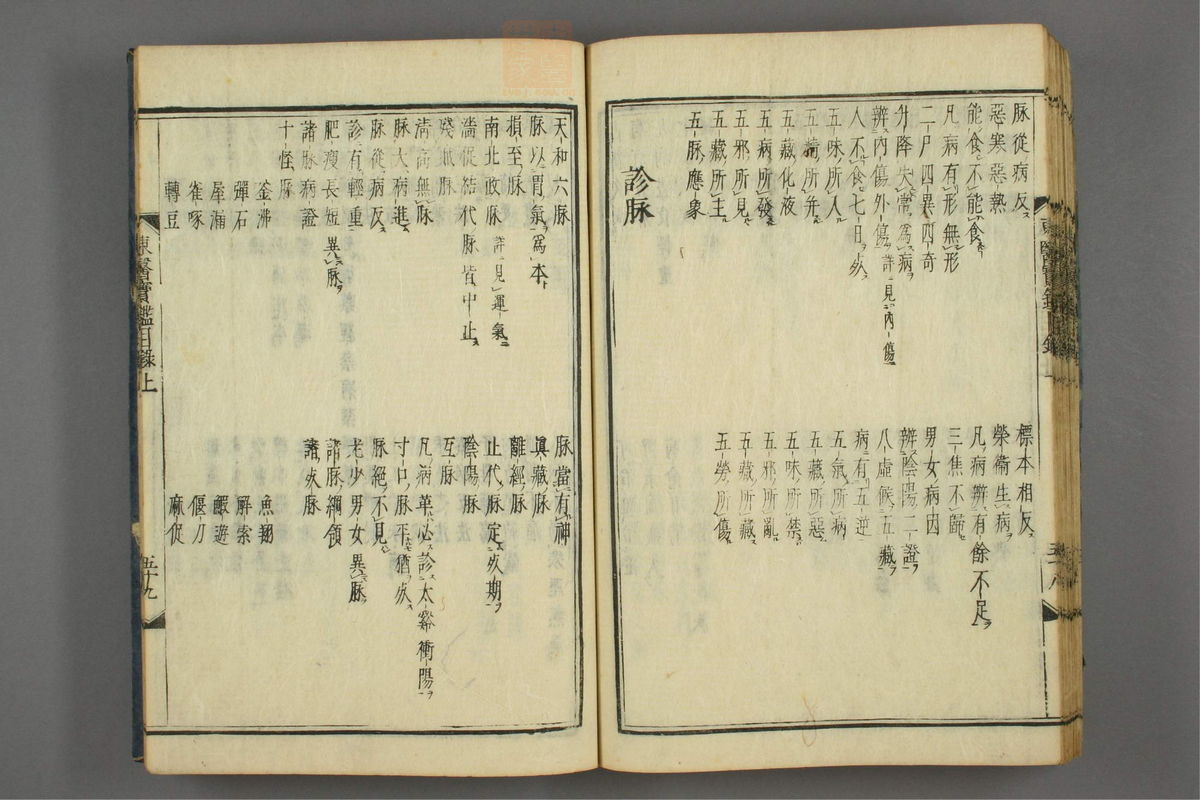 脉從病反 標本相反
惡寒惡熱 榮衛生病
能食不能食 凡病辨有餘不足
凡病有形無形 三焦不歸
二尸四異四奇 男女病因
升降失常爲病 辨陰陽二證
辨內傷外傷詳見內傷 八虛候五藏
人不食七日死 病有五逆
五味所入 五氣所病
五精所并 五藏所惡
五藏化液 五味所禁
五病所發 五邪所亂
五邪所見 五藏所藏
五藏所主 五勞所傷
五脉應象
診脉
天和六脉 脉當有神
脉以胃氣爲本 眞藏脉
損至脉 離經脉
南北政脉詳見運氣 止代脉定死期
濇促結代脉皆中止 陰陽脉
殘賊脉 互脉
清高無脉 凡病革必診太谿衝陽
脉大病進 寸口脉平猶死
脉從病反 脉絶不見
診有輕重 老少男女異脉
肥瘦長短異脉 諸脉綱領
諸脉病證 諸死脉
十怪脉
釜沸 魚翔
彈石 解索
屋漏 鰕遊
雀啄 偃刀
轉豆 麻促
東醫寶鑑目錄上 五十九